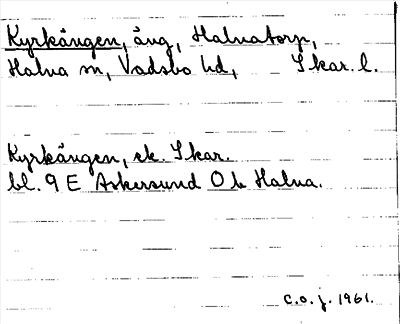 Kyrkängen, äng, Halnatorp,
Halna sn, Vadsbo hd, Skar. l.
Kyrkängen, ek. Skar.
bl. 9 E Askersund O b Halna.
C.O.J. 1961.